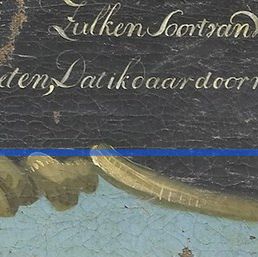 Zulken Soort van
eten, Dat ik daar door